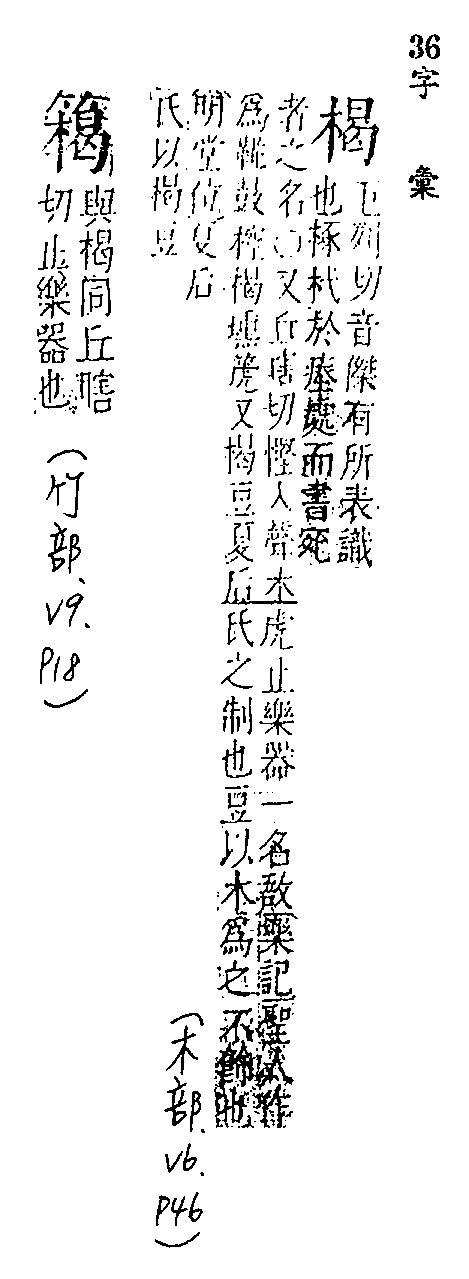 36
字彙
楬
巨列切音傑有所表識
也椓杙於瘞處而書死
者之名○又丘瞎切慳入聲木虎止樂器一名敔樂記聖人作
為鞉鼓椌楬壎篪又楬豆夏后氏之制也豆以木為之不飾也
明堂位夏后
氏以楬豆
(木部.V6.P46)
䈓
與楬同丘瞎
切止樂器也
(竹部.V9.P18)